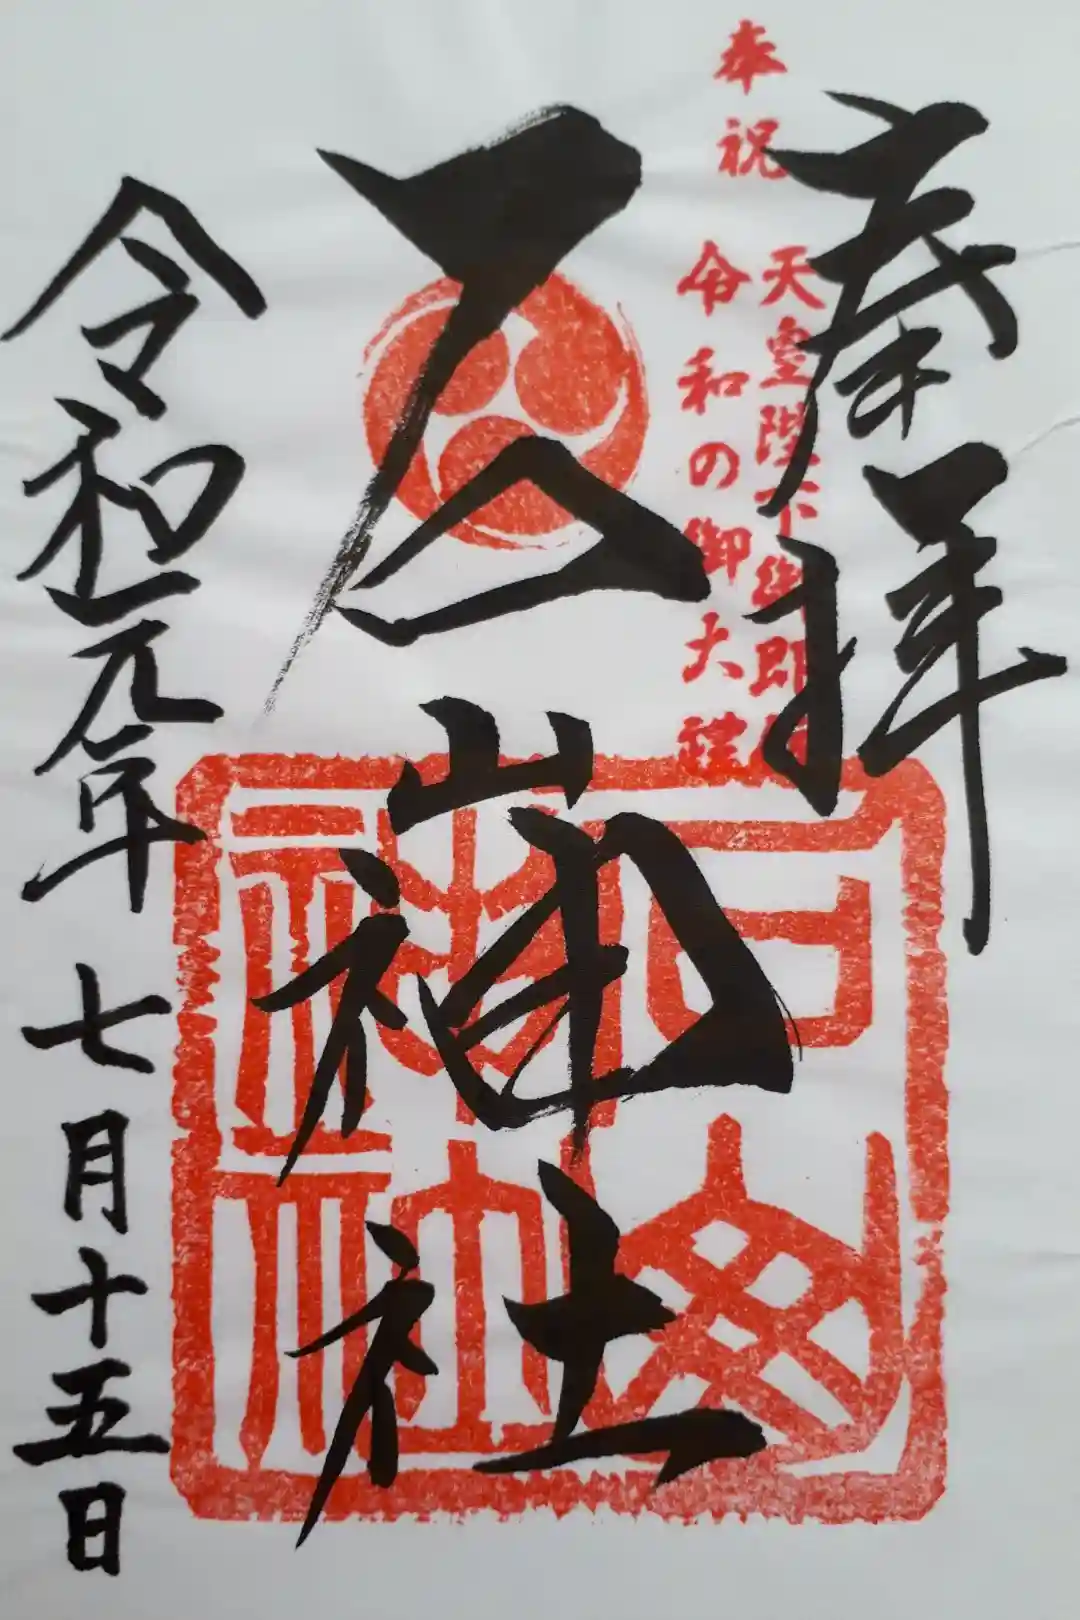 奉拝
奉祝
天皇陛下御即位
令和の御大禮
石山神社
令和元年七月十五日